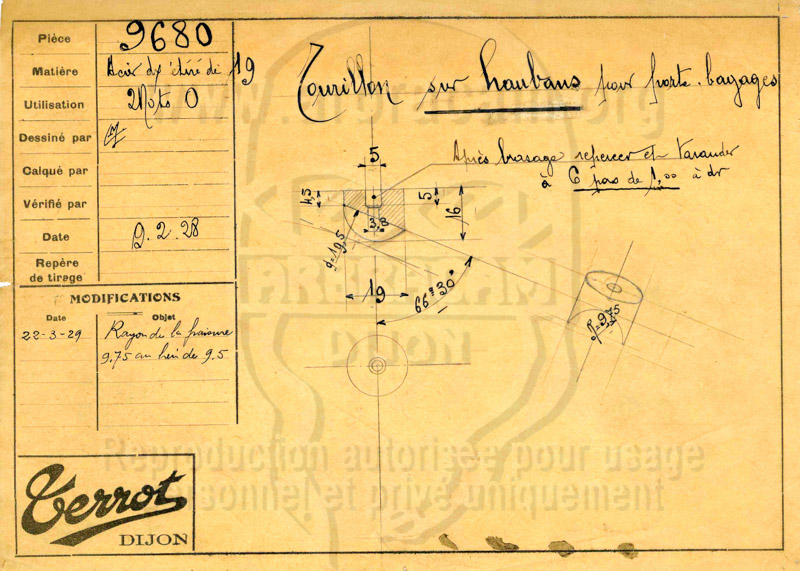 Pièce 9680
Matière Acier dx étiré de 19
Utilisation 2 Moto O
Dessiné par
Calqué par
Vérifié par
Date 9.2.28
Repère
de tirage
MODIFICATIONS
Date Objet
22-3-29 Rayon de la fraisure
9.75 au lieu de 9.5
Terrot
DIJON
Tourillon sur haubans pour porte-bagages
Après brasage repercer et tarauder
à 6 pas de 1,00 à dr
5
4,5
5
16
3,8
19
66° 30'
R=9,75
DIJON
Reproduction autorisée pour usage
personnel et privé uniquement